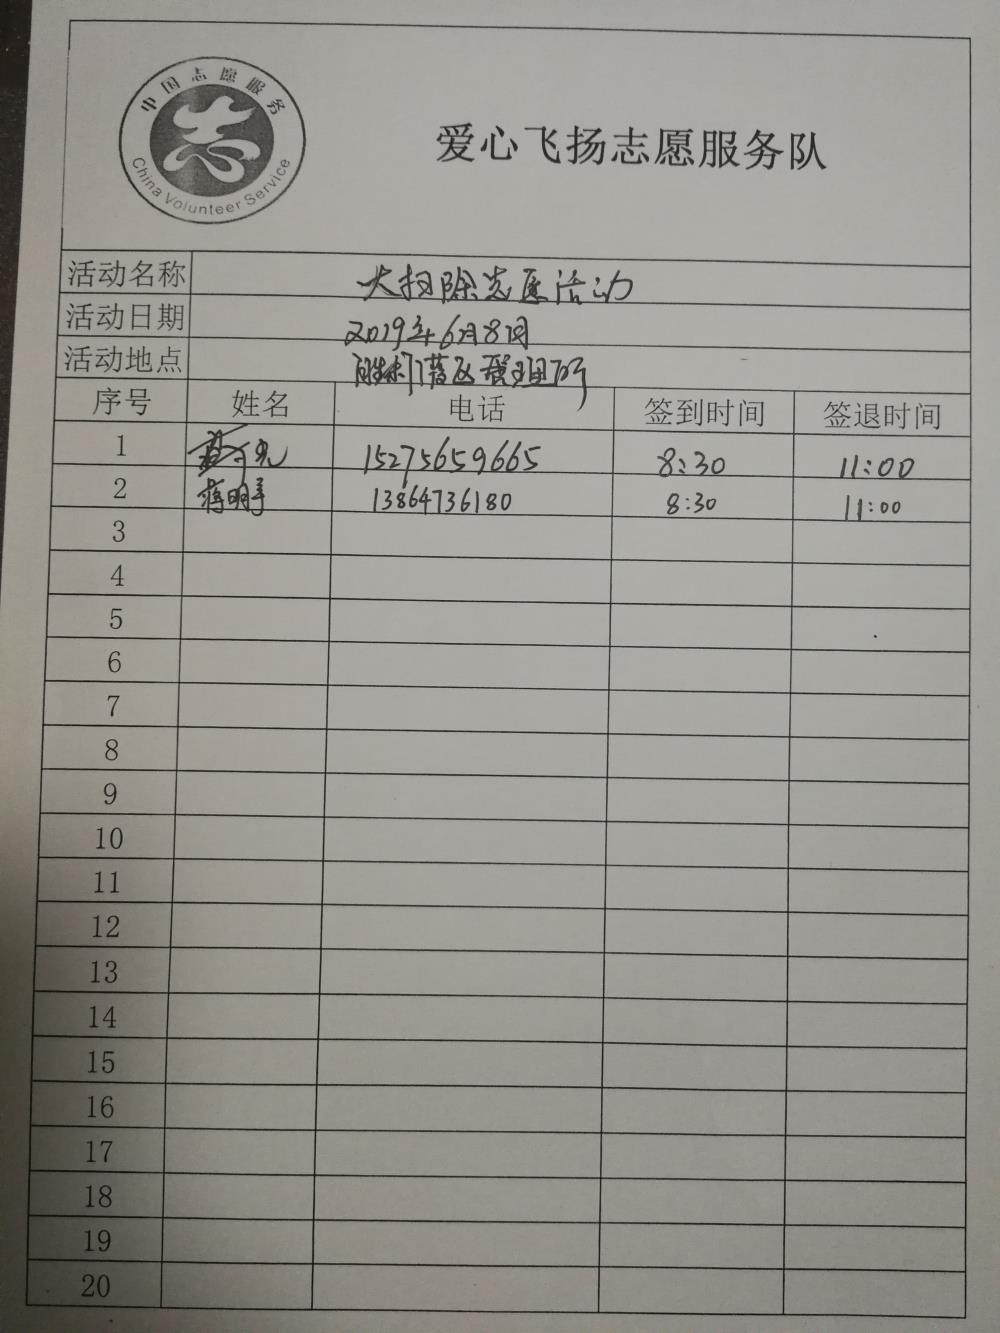 中国志愿服务
China Volunteer Service
爱心飞扬志愿服务队
活动名称 大扫除志愿活动
活动日期 2019年6月8日
活动地点 管理所
序号 姓名 电话 签到时间 签退时间
1 15275659665 8:30 11:00
2 蒋明 13864736180 8:30 11:00
3
4
5
6
7
8
9
10
11
12
13
14
15
16
17
18
19
20